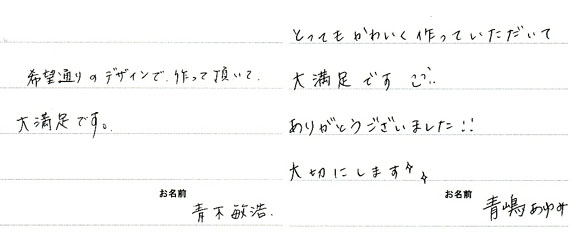 希望通りのデザインで、作って頂いて、
大満足です。
お名前
青木敏浩.
とってもかわいく作っていただいて
大満足です
ありがとうございました!!
大切にします
お名前
青嶋あゆみ